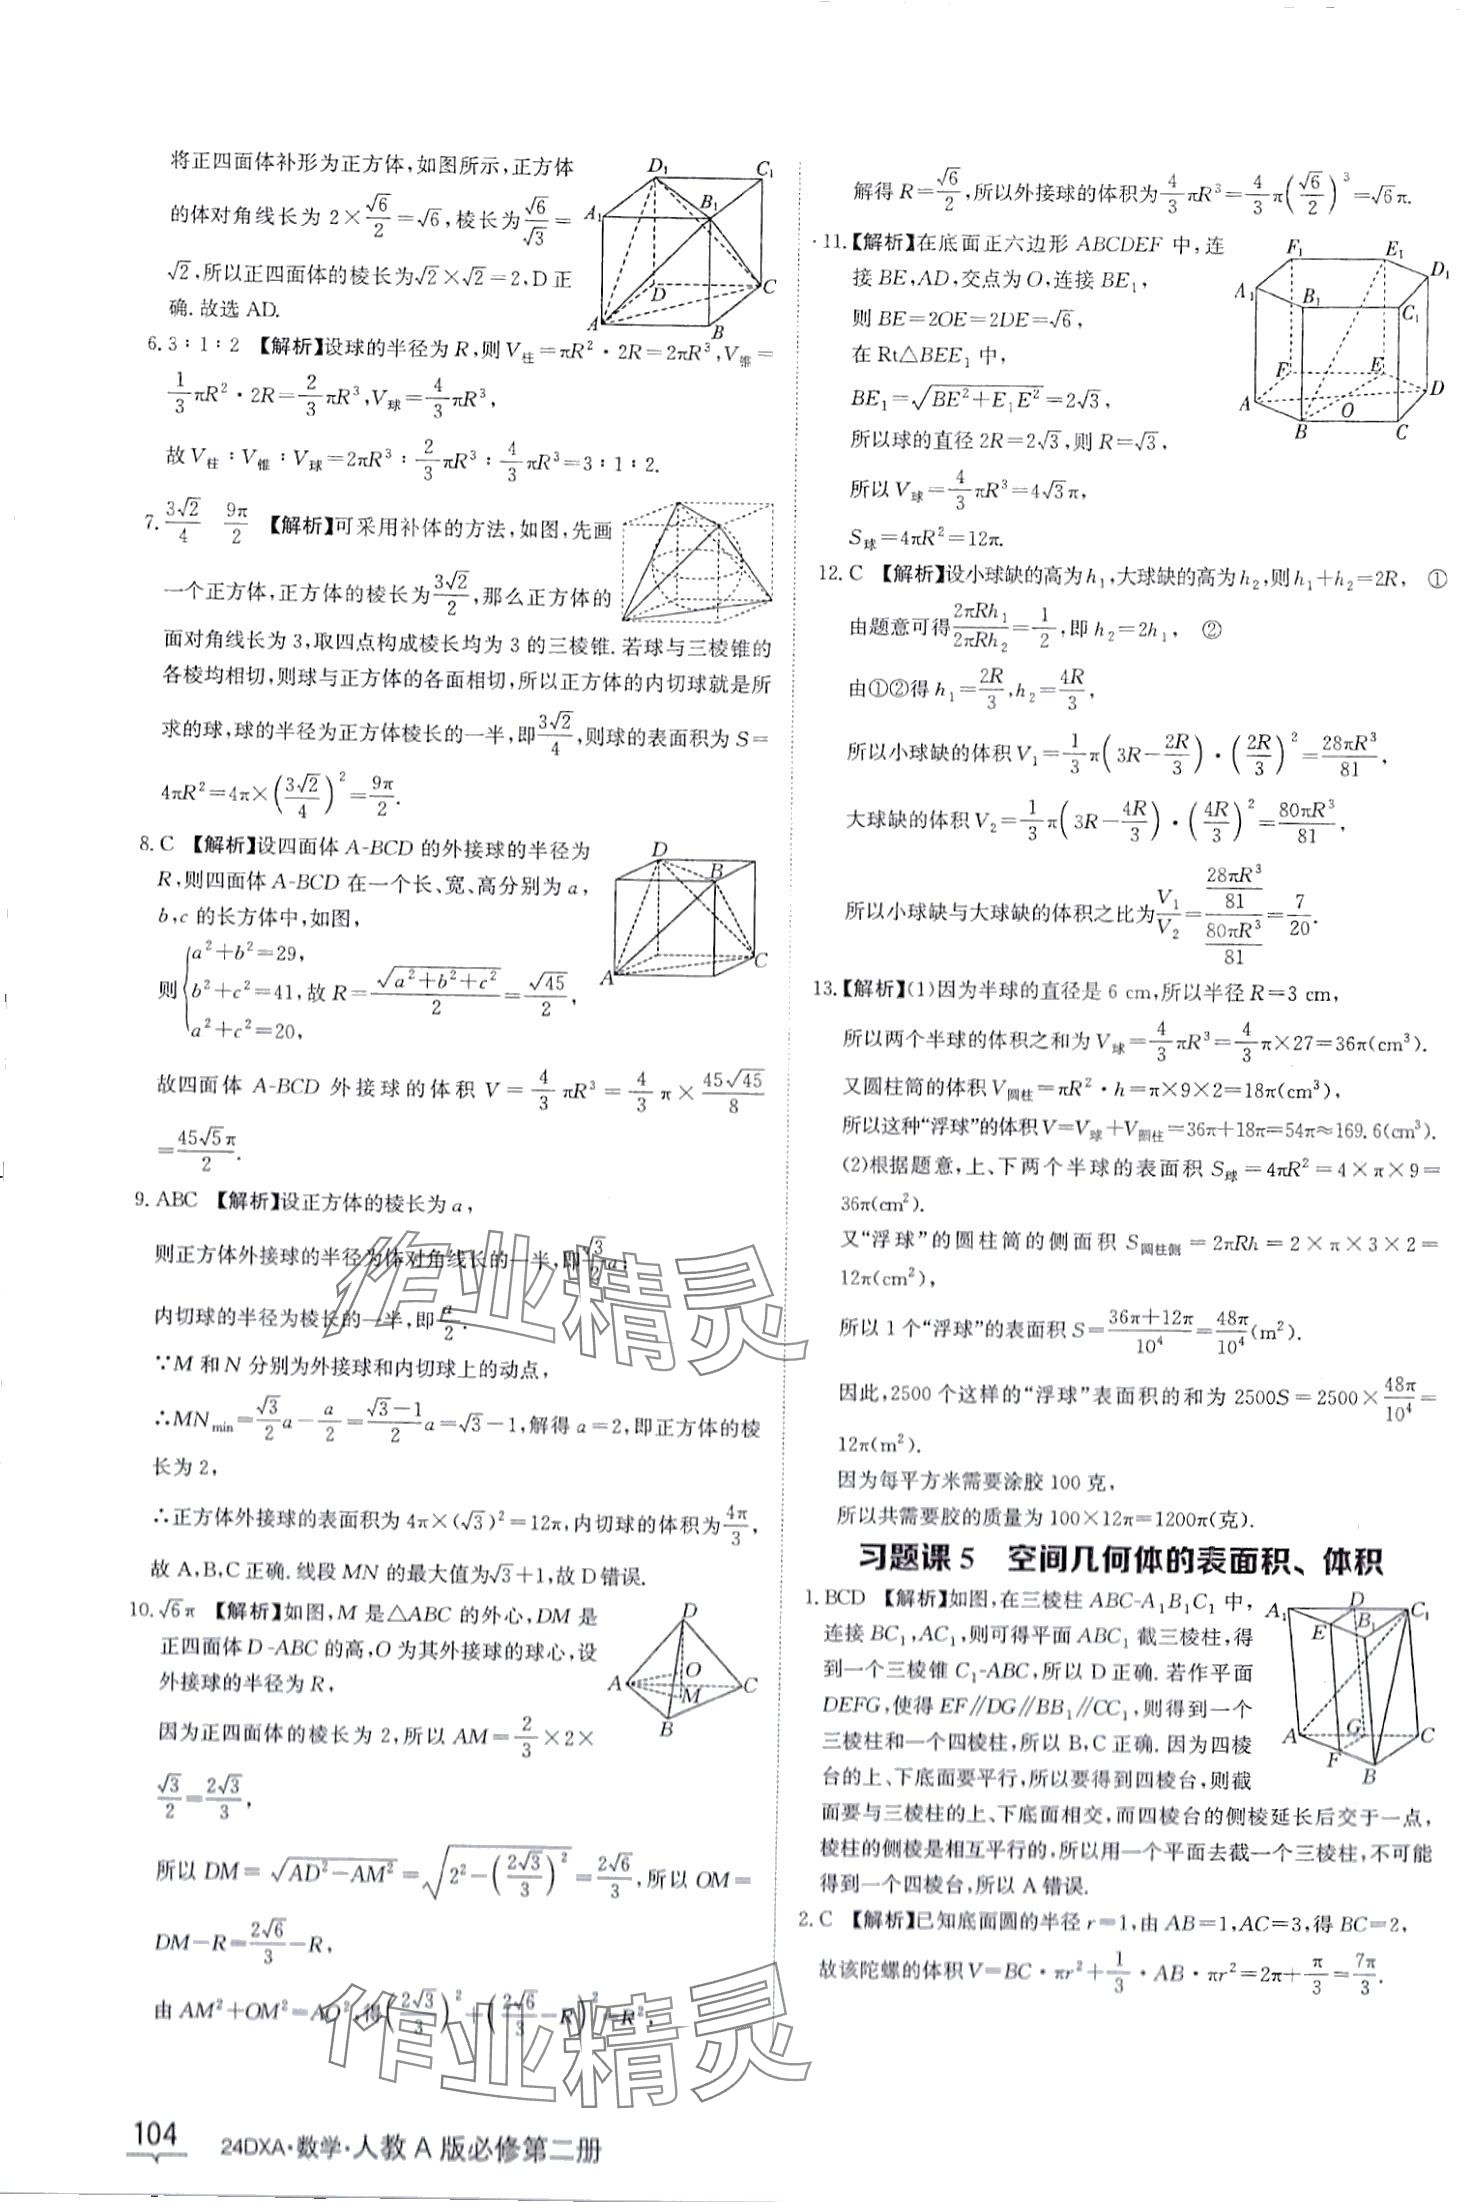 将正四面体补形为正方体,如图所示,正方体
的体对角线长为 2×√6/2=√6,棱长为√6/√3=
√2,所以正四面体的棱长为√2×√2=2,D 正
确. 故选 AD.
6. 3∶1∶2 【解析】设球的半径为 R,则 V柱=πR²·2R=2πR³,V锥=
1/3πR²·2R=2/3πR³,V球=4/3πR³,
故 V柱∶V锥∶V球=2πR³∶2/3πR³∶4/3πR³=3∶1∶2.
7. 3√2/4 9π/2 【解析】可采用补体的方法,如图,先画
一个正方体,正方体的棱长为3√2/2,那么正方体的
面对角线长为 3,取四点构成棱长均为 3 的三棱锥. 若球与三棱锥的
各棱均相切,则球与正方体的各面相切,所以正方体的内切球就是所
求的球,球的半径为正方体棱长的一半,即3√2/4,则球的表面积为 S=
4πR²=4π×(3√2/4)²=9π/2.
8. C 【解析】设四面体 A-BCD 的外接球的半径为
R,则四面体 A-BCD 在一个长、宽、高分别为 a,
b,c 的长方体中,如图,
则{a²+b²=29, b²+c²=41, a²+c²=20, 故 R=√(a²+b²+c²)/2=√45/2,
故四面体 A-BCD 外接球的体积 V=4/3πR³=4/3π×45√45/8
=45√5π/2.
9. ABC 【解析】设正方体的棱长为 a,
则正方体外接球的半径为体对角线长的一半,即√3/2a;
内切球的半径为棱长的一半,即a/2.
∵M 和 N 分别为外接球和内切球上的动点,
∴MNmin=√3/2a-a/2=(√3-1)/2a=√3-1,解得 a=2,即正方体的棱
长为 2,
∴正方体外接球的表面积为 4π×(√3)²=12π,内切球的体积为4π/3,
故 A,B,C 正确. 线段 MN 的最大值为√3+1,故 D 错误.
10. √6π 【解析】如图,M 是△ABC 的外心,DM 是
正四面体 D-ABC 的高,O 为其外接球的球心,设
外接球的半径为 R,
因为正四面体的棱长为 2,所以 AM=2/3×2×
√3/2=2√3/3,
所以 DM=√(AD²-AM²)=√(2²-(2√3/3)²)=2√6/3,所以 OM=
DM-R=2√6/3-R,
由 AM²+OM²=AO²,得(2√3/3)²+(2√6/3-R)²=R²,
104
24DXA·数学·人教 A 版必修第二册
解得 R=√6/2,所以外接球的体积为4/3πR³=4/3π(√6/2)³=√6π.
11.【解析】在底面正六边形 ABCDEF 中,连
接 BE,AD,交点为 O,连接 BE₁,
则 BE=2OE=2DE=√6,
在 Rt△BEE₁ 中,
BE₁=√(BE²+E₁E²)=2√3,
所以球的直径 2R=2√3,则 R=√3,
所以 V球=4/3πR³=4√3π,
S球=4πR²=12π.
12. C 【解析】设小球缺的高为h₁,大球缺的高为h₂,则 h₁+h₂=2R, ①
由题意可得2πRh₁/2πRh₂=1/2,即 h₂=2h₁, ②
由①②得 h₁=2R/3,h₂=4R/3,
所以小球缺的体积 V₁=1/3π(3R-2R/3)·(2R/3)²=28πR³/81,
大球缺的体积 V₂=1/3π(3R-4R/3)·(4R/3)²=80πR³/81,
所以小球缺与大球缺的体积之比为V₁/V₂=(28πR³/81)/(80πR³/81)=7/20.
13.【解析】(1)因为半球的直径是 6 cm,所以半径 R=3 cm,
所以两个半球的体积之和为 V球=4/3πR³=4/3π×27=36π(cm³).
又圆柱筒的体积 V圆柱=πR²·h=π×9×2=18π(cm³),
所以这种“浮球”的体积 V=V球+V圆柱=36π+18π=54π≈169.6(cm³).
(2)根据题意,上、下两个半球的表面积 S球=4πR²=4×π×9=
36π(cm²).
又“浮球”的圆柱筒的侧面积 S圆柱侧=2πRh=2×π×3×2=
12π(cm²),
所以 1 个“浮球”的表面积 S=(36π+12π)/10⁴=48π/10⁴(m²).
因此,2500 个这样的“浮球”表面积的和为 2500S=2500×48π/10⁴=
12π(m²).
因为每平方米需要涂胶 100 克,
所以共需要胶的质量为 100×12π=1200π(克).
习题课 5 空间几何体的表面积、体积
1. BCD 【解析】如图,在三棱柱 ABC-A₁B₁C₁ 中,
连接 BC₁,AC₁,则可得平面 ABC₁ 截三棱柱,得
到一个三棱锥 C₁-ABC,所以 D 正确. 若作平面
DEFG,使得 EF∥DG∥BB₁∥CC₁,则得到一个
三棱柱和一个四棱柱,所以 B,C 正确. 因为四棱
台的上、下底面要平行,所以要得到四棱台,则截
面要与三棱柱的上、下底面相交,而四棱台的侧棱延长后交于一点,
棱柱的侧棱是相互平行的,所以用一个平面去截一个三棱柱,不可能
得到一个四棱台,所以 A 错误.
2. C 【解析】已知底面圆的半径 r=1,由 AB=1,AC=3,得 BC=2,
故该陀螺的体积 V=BC·πr²+1/3·AB·πr²=2π+π/3=7π/3.
作业精灵
作业精灵